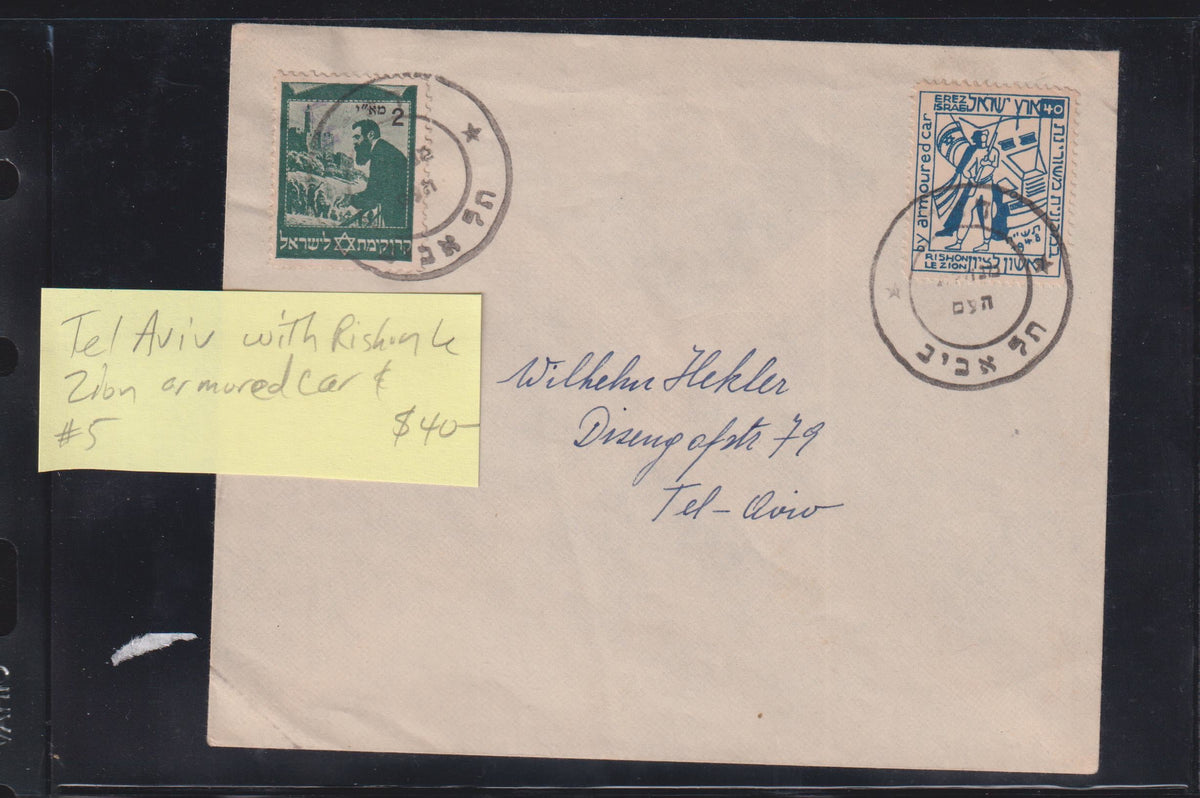 מא"י 2
קרן קימת לישראל
תל אביב
EREZ
ISRAEL
ארץ ישראל
40
by armoured car
במשוריינת
RISHON
LE ZION
ראשון לציון
תש"ח
מנהלת
העם
תל אביב
Tel Aviv with Rishon le
Zion armored car &
#5 $40-
Wilhelm Hekler
Disengofstr 79
Tel-Aviv